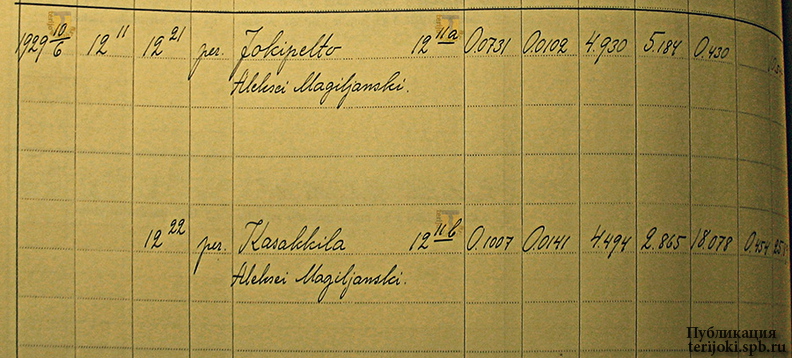 1929 10/6 12 11 12 21 per. Jokipelto 12 11a 0.0731 0.0102 4.930 5.184 0.430
Aleksei Magiljanski.
12 22 per. Kasakkila 12 11b 0.1007 0.0141 4.494 2.865 18.078 0.454
Aleksei Magiljanski.
Публикация
terijoki.spb.ru